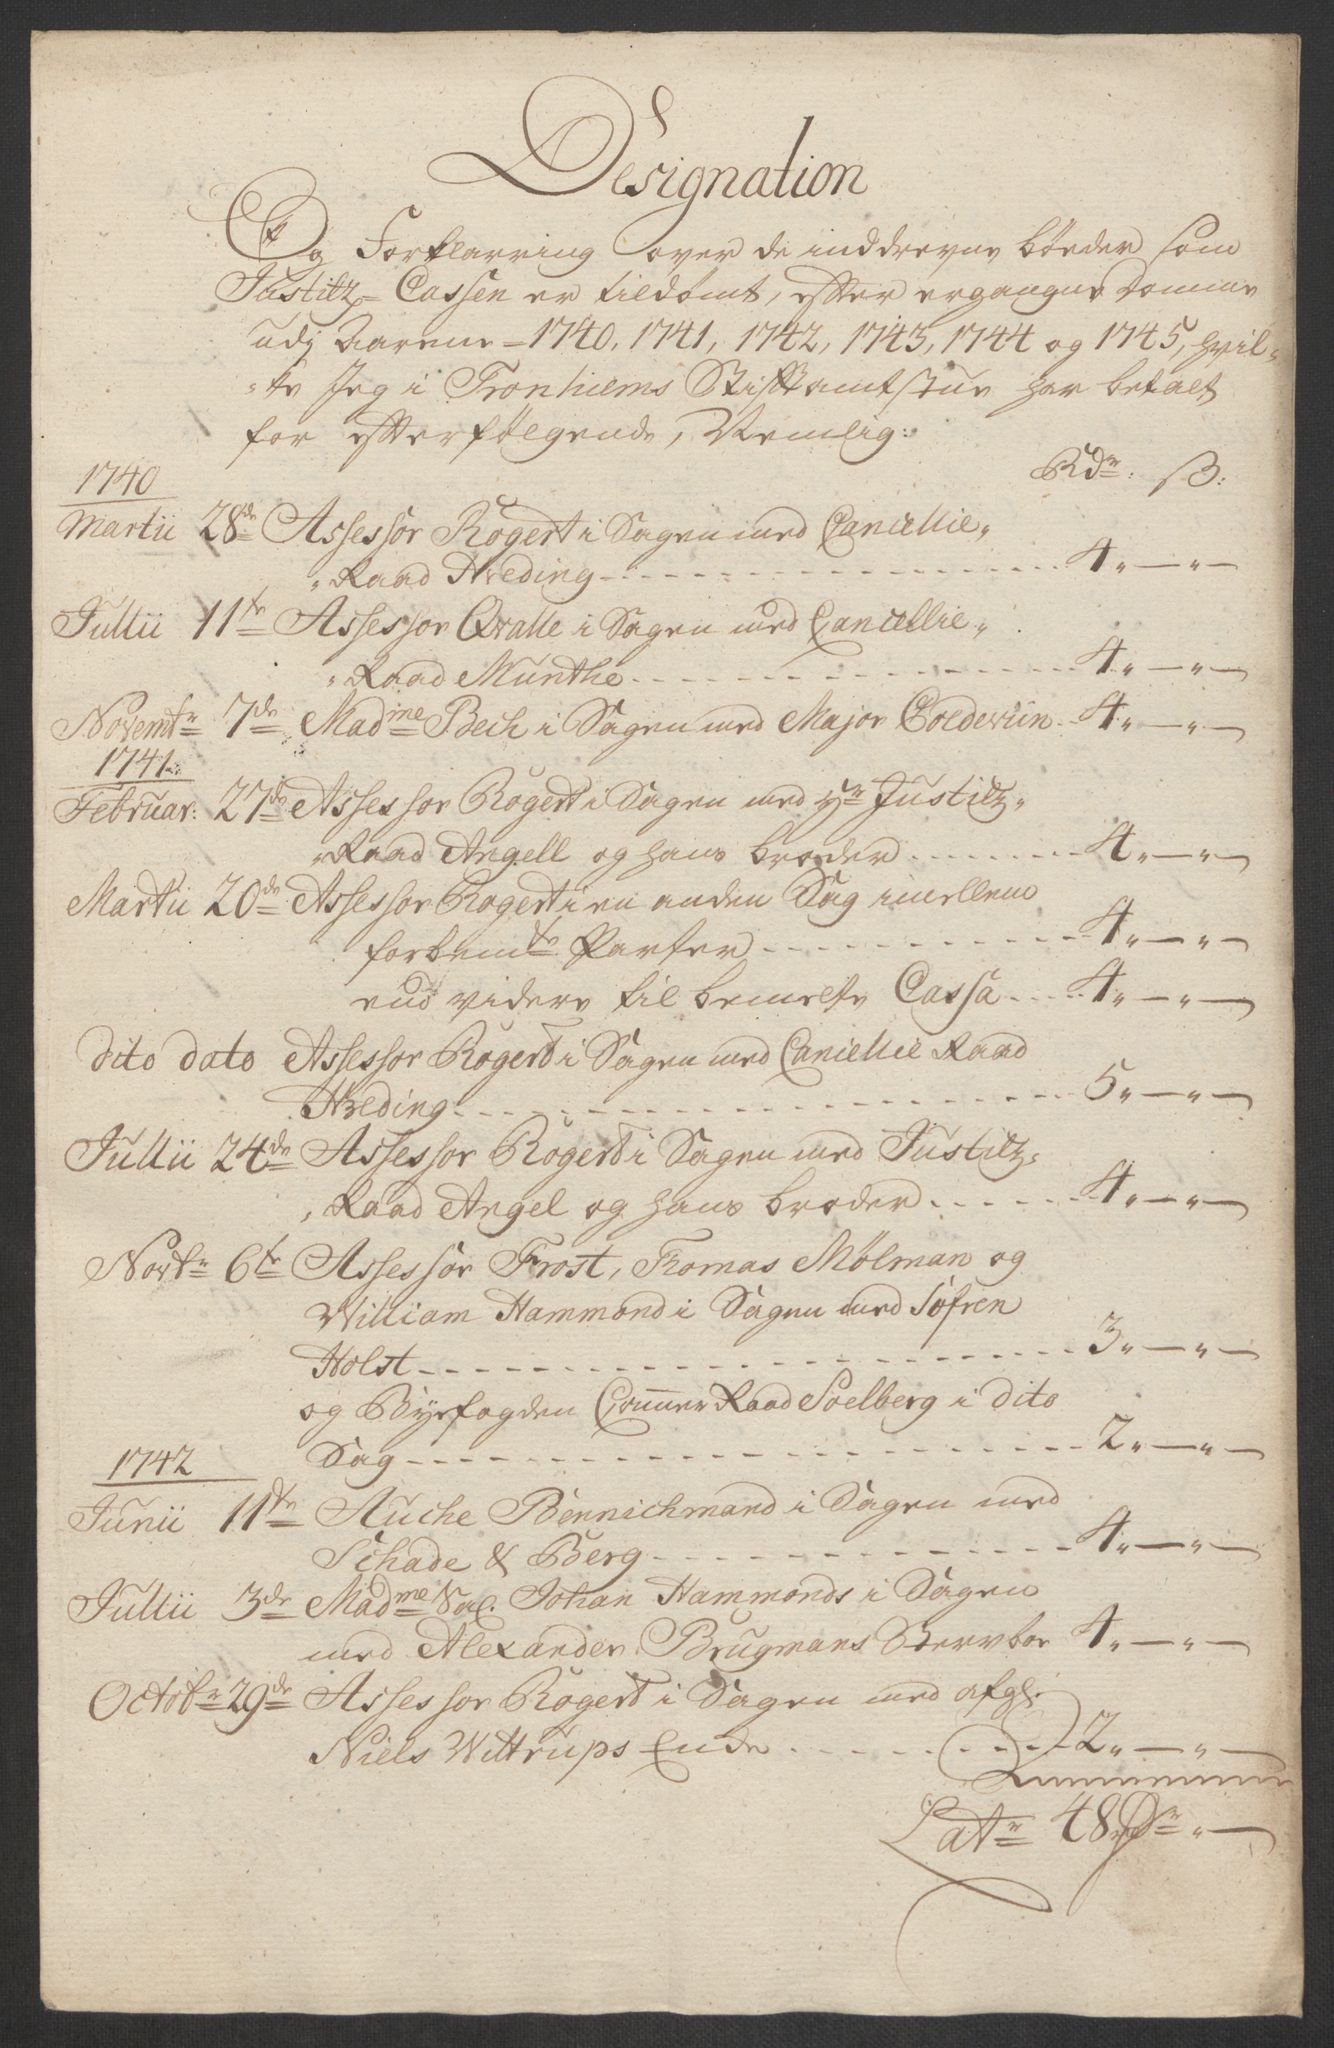 Designation
Og Forklarring over de inddrevne bøeder som
Justitz-Cassen er tildømt, efter ergangne Domme
udj Aarene - 1740, 1741, 1742, 1743, 1744 og 1745, hvil-
-ke Jeg i Tronhiems Stiftamtstue har betalt
for efterfølgende, Nemlig:
Rdr: ß:
1740
Martii 28de Assessor Rogert i Sagen med Cancellie-
-Raad Hveding 4"—"—
Jullii 11te Assessor Qvalle i Sagen med Cancellie-
-Raad Munthe 4"—"—
Novembr 7de Madme Bech i Sagen med Major Coldeviin 4"—"—
1741:
Februar: 27de Assessor Rogert i Sagen med Hr Justitz-
-Raad Angell og hans broder 4"—"—
Martii 20de Assessor Rogert i en anden Sag imellem
forbemte Parter 4"—"—
end videre til bemelte Cassa 4"—"—
dito dato Assessor Rogert i Sagen med Cancellie Raad
Hveding 5"—"—
Jullii 24de Assessor Rogert i Sagen med Justitz-
-Raad Angel og hans broder 4"—"—
Novbr 6te Assessor Frost, Tomas Mølman og
William Hammond i Sagen med Søfren
Holst 3"—"—
og Byefogden Commer Raad Soelberg i dito
Sag 2"—"—
1742
Junii 11te Auche Bennichmand i Sagen med
Schade & Berg 4"—"—
Jullii 3de Madme Sal. Johan Hammonds i Sagen
med Alexander Brugmans Stervboe 4"—"—
Octobr 29de Assessor Rogert i Sagen med afgl:
Niels Wittrups Encke 2"—"—
Latr 48 Rdr "—